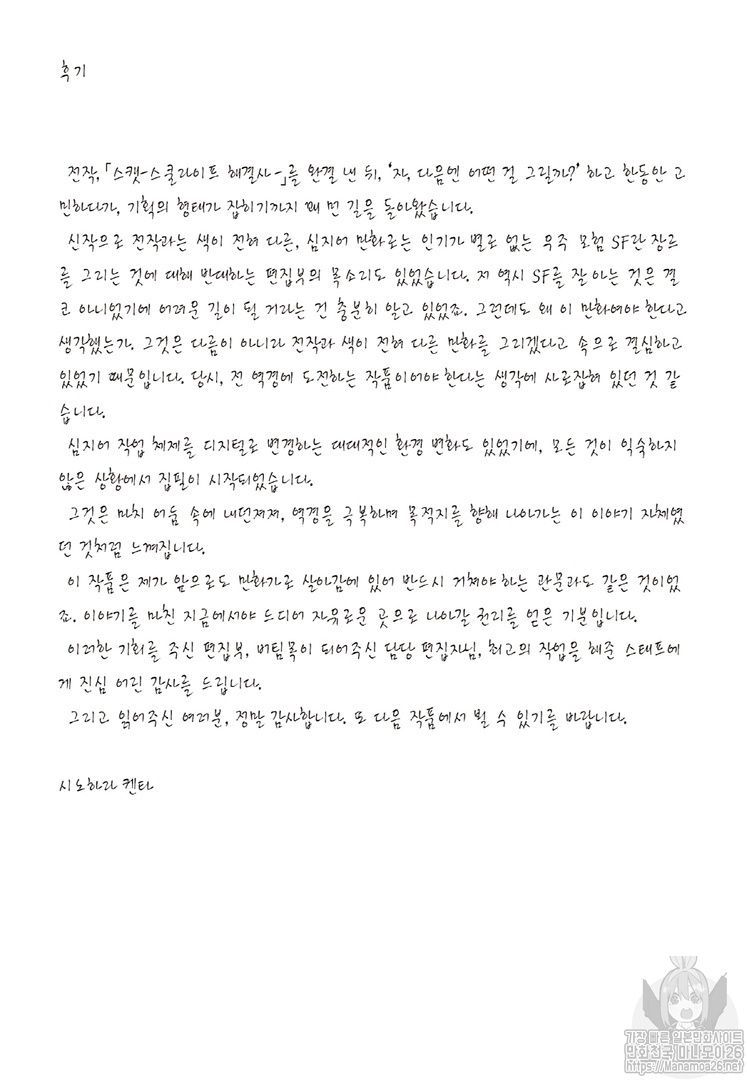 후기
전작, 「스캣-스쿨라이프 해결사-」를 완결 낸 뒤, '자, 다음엔 어떤 걸 그릴까?' 하고 한동안 고
민하다가, 기획의 형태가 잡히기까지 꽤 먼 길을 돌아왔습니다.
신작으로 전작과는 색이 전혀 다른, 심지어 만화로는 인기가 별로 없는 우주 모험 SF란 장르
를 그리는 것에 대해 반대하는 편집부의 목소리도 있었습니다. 저 역시 SF를 잘 아는 것은 결
코 아니었기에 어려운 길이 될 거라는 건 충분히 알고 있었죠. 그런데도 왜 이 만화여야 한다고
생각했는가. 그것은 다름이 아니라 전작과 색이 전혀 다른 만화를 그리겠다고 속으로 결심하고
있었기 때문입니다. 당시, 전 역경에 도전하는 작품이어야 한다는 생각에 사로잡혀 있던 것 같
습니다.
심지어 작업 체제를 디지털로 변경하는 대대적인 환경 변화도 있었기에, 모든 것이 익숙하지
않은 상황에서 집필이 시작되었습니다.
그것은 마치 어둠 속에 내던져져, 역경을 극복하며 목적지를 향해 나아가는 이 이야기 자체였
던 것처럼 느껴집니다.
이 작품은 제가 앞으로도 만화가로 살아감에 있어 반드시 거쳐야 하는 관문과도 같은 것이었
죠. 이야기를 마친 지금에서야 드디어 자유로운 곳으로 나아갈 권리를 얻은 기분입니다.
이러한 기회를 주신 편집부, 버팀목이 되어주신 담당 편집자님, 최고의 작업을 해준 스태프에
게 진심 어린 감사를 드립니다.
그리고 읽어주신 여러분, 정말 감사합니다. 또 다음 작품에서 뵐 수 있기를 바랍니다.
시노하라 켄타
가장 빠른 일본만화사이트
만화천국 마나모아26
https://Manamoa26.net